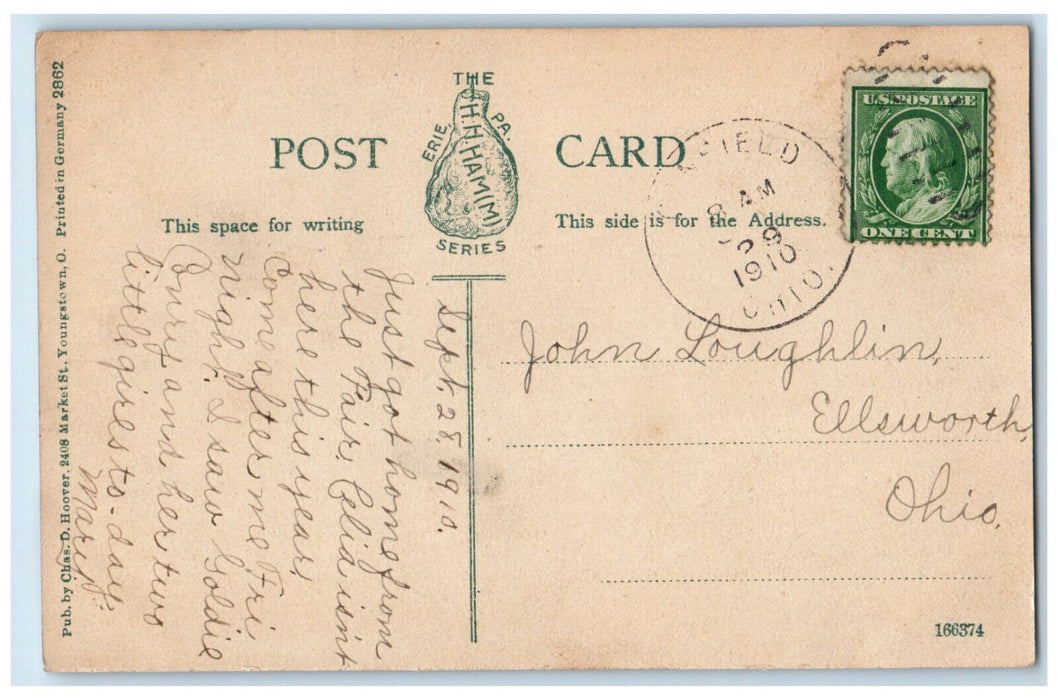 THE
H.H.HAM(M)
ERIE, PA.
SERIES
POST CARD
This space for writing
This side is for the Address.
U.S. POSTAGE
ONE CENT
FIELD
8 AM
1910
OHIO.
Sept. 28, 1910.
Just got home from
the Fair, Celia isn't
here this year,
Come after me Fri
night. I saw Goldie
and her two
little girls to-day.
Mary.
John Loughlin,
Ellsworth,
Ohio.
Pub. by Chas. D. Hoover, 2408 Market St., Youngstown, O. Printed in Germany 2862
166374